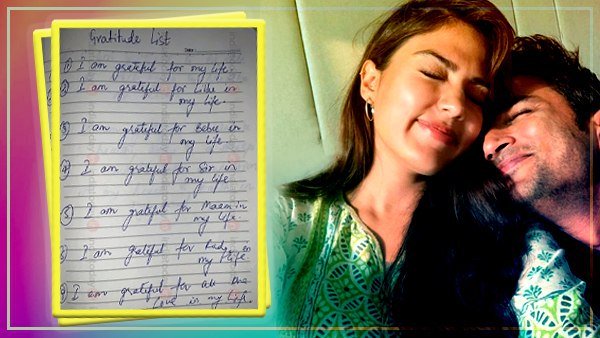 Gratitude List
Date:
① I am grateful for my life.
② I am grateful for Lillu in
my life.
③ I am grateful for Bebu in
my life.
④ I am grateful for Sir in
my life
⑤ I am grateful for Maam in
my life.
⑥ I am grateful for Fudge in
my life.
⑦ I am grateful for all the
Love in my life